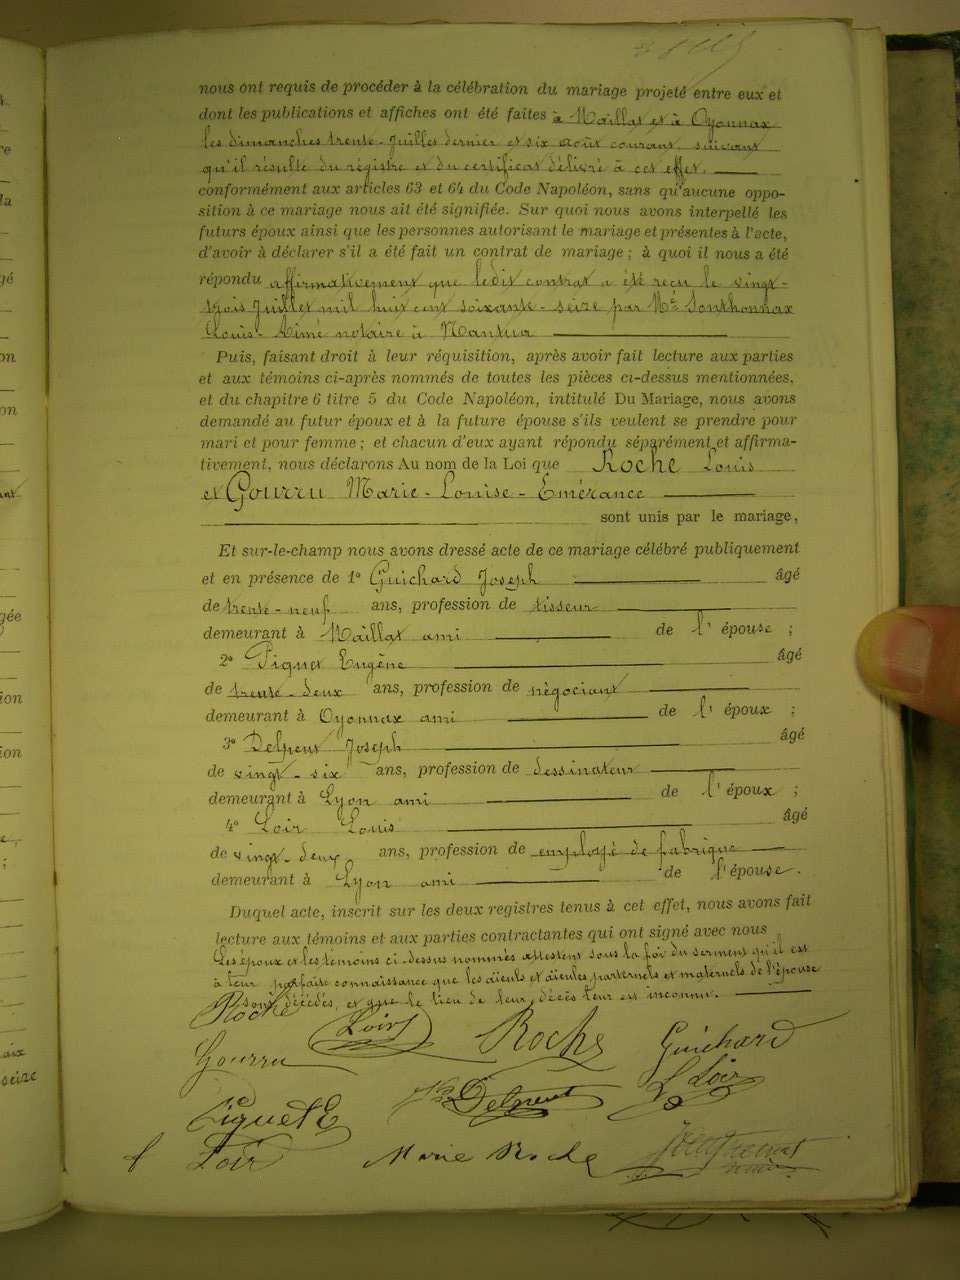 nous ont requis de procéder à la célébration du mariage projeté entre eux et
dont les publications et affiches ont été faites à Maillat et à Oyonnax
les dimanches trente-Juillet dernier et six août courant, suivant
qu'il résulte du régistre et du certificat délivré à cet effet.
conformément aux articles 63 et 64 du Code Napoléon, sans qu'aucune oppo-
sition à ce mariage nous ait été signifiée. Sur quoi nous avons interpellé les
futurs époux ainsi que les personnes autorisant le mariage et présentes à l'acte,
d'avoir à déclarer s'il a été fait un contrat de mariage ; à quoi il nous a été
répondu affirmativement que ledit contrat a été reçu le vingt-
trois Juillet mil huit cent soixante-seize par Me Sonthonnax
Louis-Aimé notaire à Nantua
Puis, faisant droit à leur réquisition, après avoir fait lecture aux parties
et aux témoins ci-après nommés de toutes les pièces ci-dessus mentionnées,
et du chapitre 6 titre 5 du Code Napoléon, intitulé Du Mariage, nous avons
demandé au futur époux et à la future épouse s'ils veulent se prendre pour
mari et pour femme ; et chacun d'eux ayant répondu séparément et affirma-
tivement, nous déclarons Au nom de la Loi que Roche Louis
et Gourru Marie-Louise-Emérance
sont unis par le mariage,
Et sur-le-champ nous avons dressé acte de ce mariage célébré publiquement
et en présence de 1° Guichard Joseph âgé
de trente-neuf ans, profession de tisseur
demeurant à Maillat ami de l'épouse ;
2° Piquet Eugène âgé
de trente-deux ans, profession de négociant
demeurant à Oyonnax ami de l'époux ;
3° Delpeut Joseph âgé
de vingt-six ans, profession de dessinateur
demeurant à Lyon ami de l'époux ;
4° Loir Louis âgé
de vingt-deux ans, profession de employé de fabrique
demeurant à Lyon ami de l'épouse.
Duquel acte, inscrit sur les deux registres tenus à cet effet, nous avons fait
lecture aux témoins et aux parties contractantes qui ont signé avec nous
Les époux et les témoins ci-dessus nommés attestent sous la foi du serment qu'il est
à leur parfaite connaissance que les aïeuls et aïeules paternels et maternels de l'épouse
sont décédés, et que le lieu de leur décès leur est inconnu.
Roche Loir Roche Guichard
Gourru L Loir
Piquet E Delpeut
Loir Marie Roche